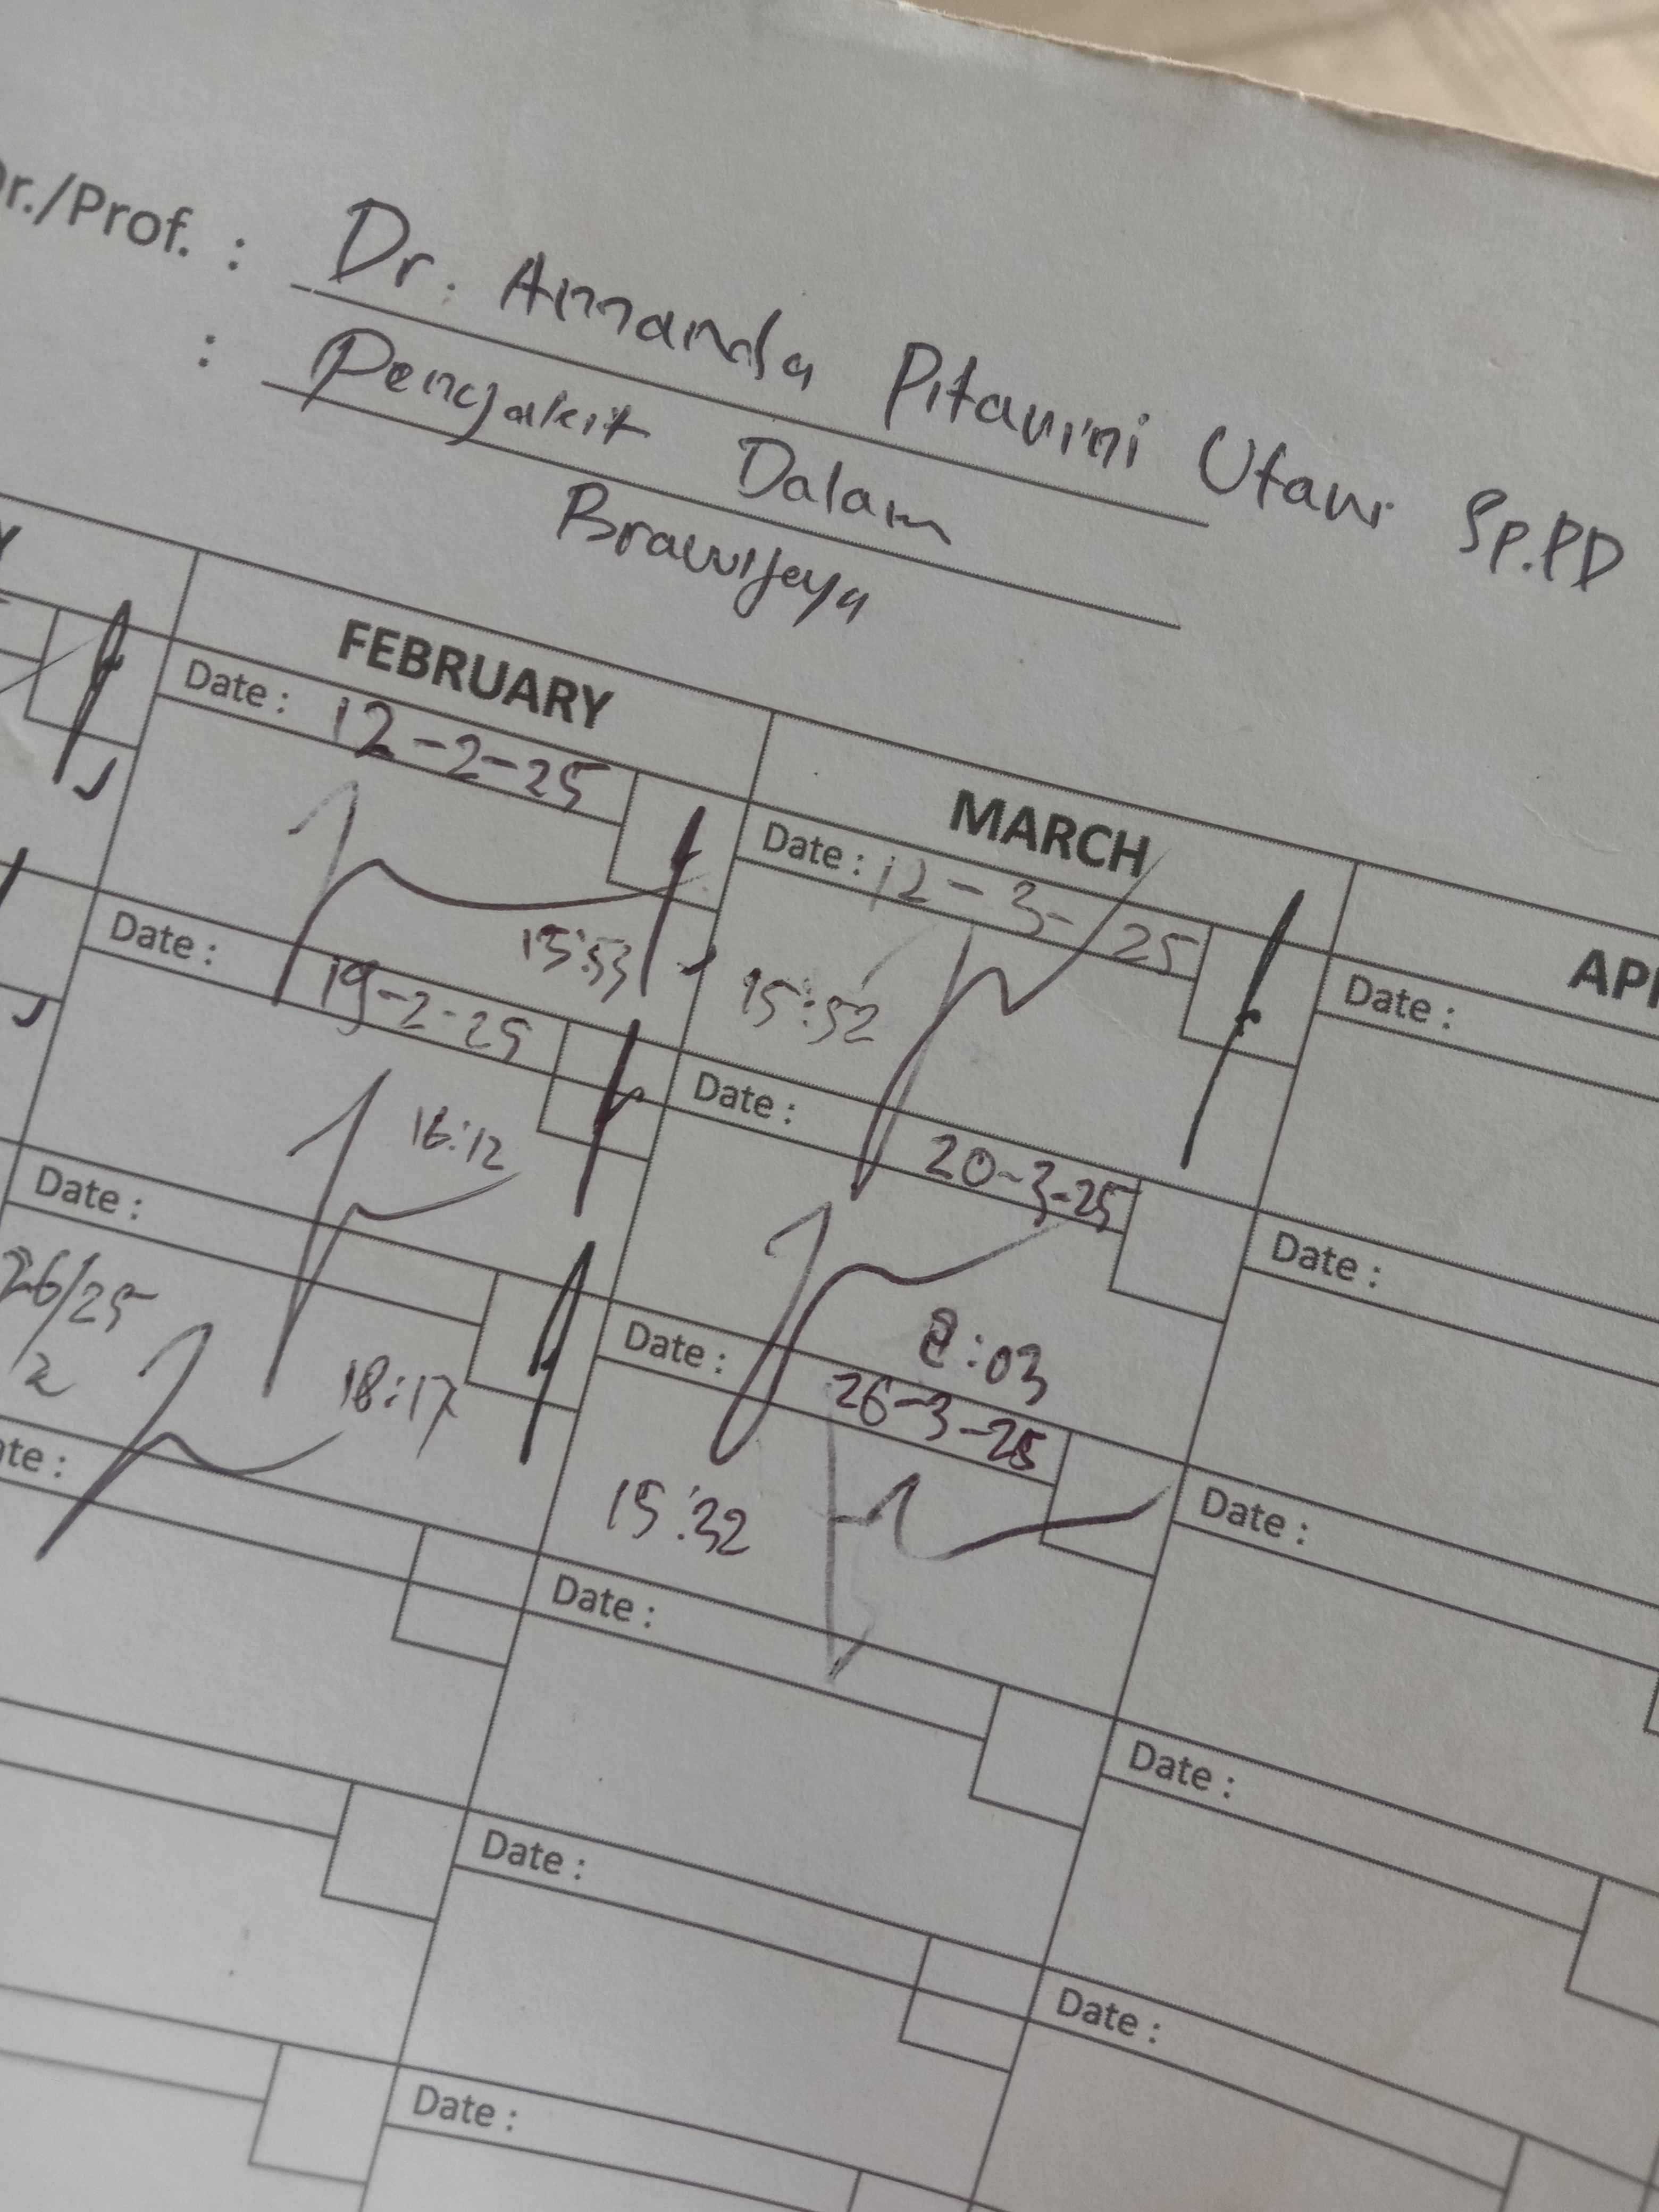 Dr./Prof. : Dr. Amanda Pitarini Utari Sp.PD
: Pengakit Dalam
Brawijaya
FEBRUARY
Date : 12-2-25
15:53
Date : 19-2-25
16:12
Date :
26/25
2
18:17
MARCH
Date : 12-3-25
15:52
Date : 20-3-25
8:03
Date : 26-3-25
15:32
Date :
Date :
Date :
Date :
Date :
Date :
Date :
Date :